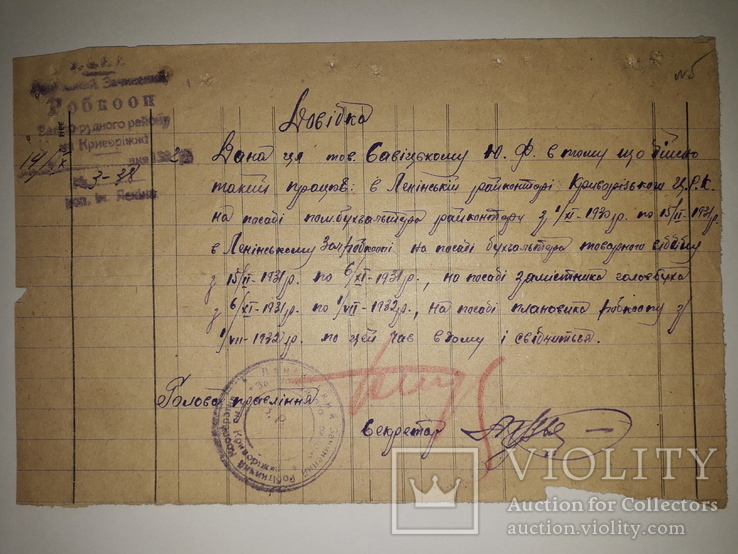 Робкооп
рудного району
на Криворіжжі
3-38
№5
Довідка
Дана ця тов. Савіцькому Ю. Ф. в тому що дійсно
такий працюв. в Ленінській райконторі Криворізького Ц.Р.К.
на посаді пом.бухгальтура райконтори з 1/XI-1930 р. по 15/II-1931 р.
в Ленінському на посаді бухгальтура товарного відділу
з 15/II-1931 р. по 6/XI-1931 р., на посаді замістника головбуха
з 6/XI-1931 р. по 1/VII-1932 р., на посаді плановика робкоопу з
1/VII-1932 р. по цей час в чому і свідчиться.
Голова правління
Секретар
VIOLITY
Auction for Collectors
auction.violity.com